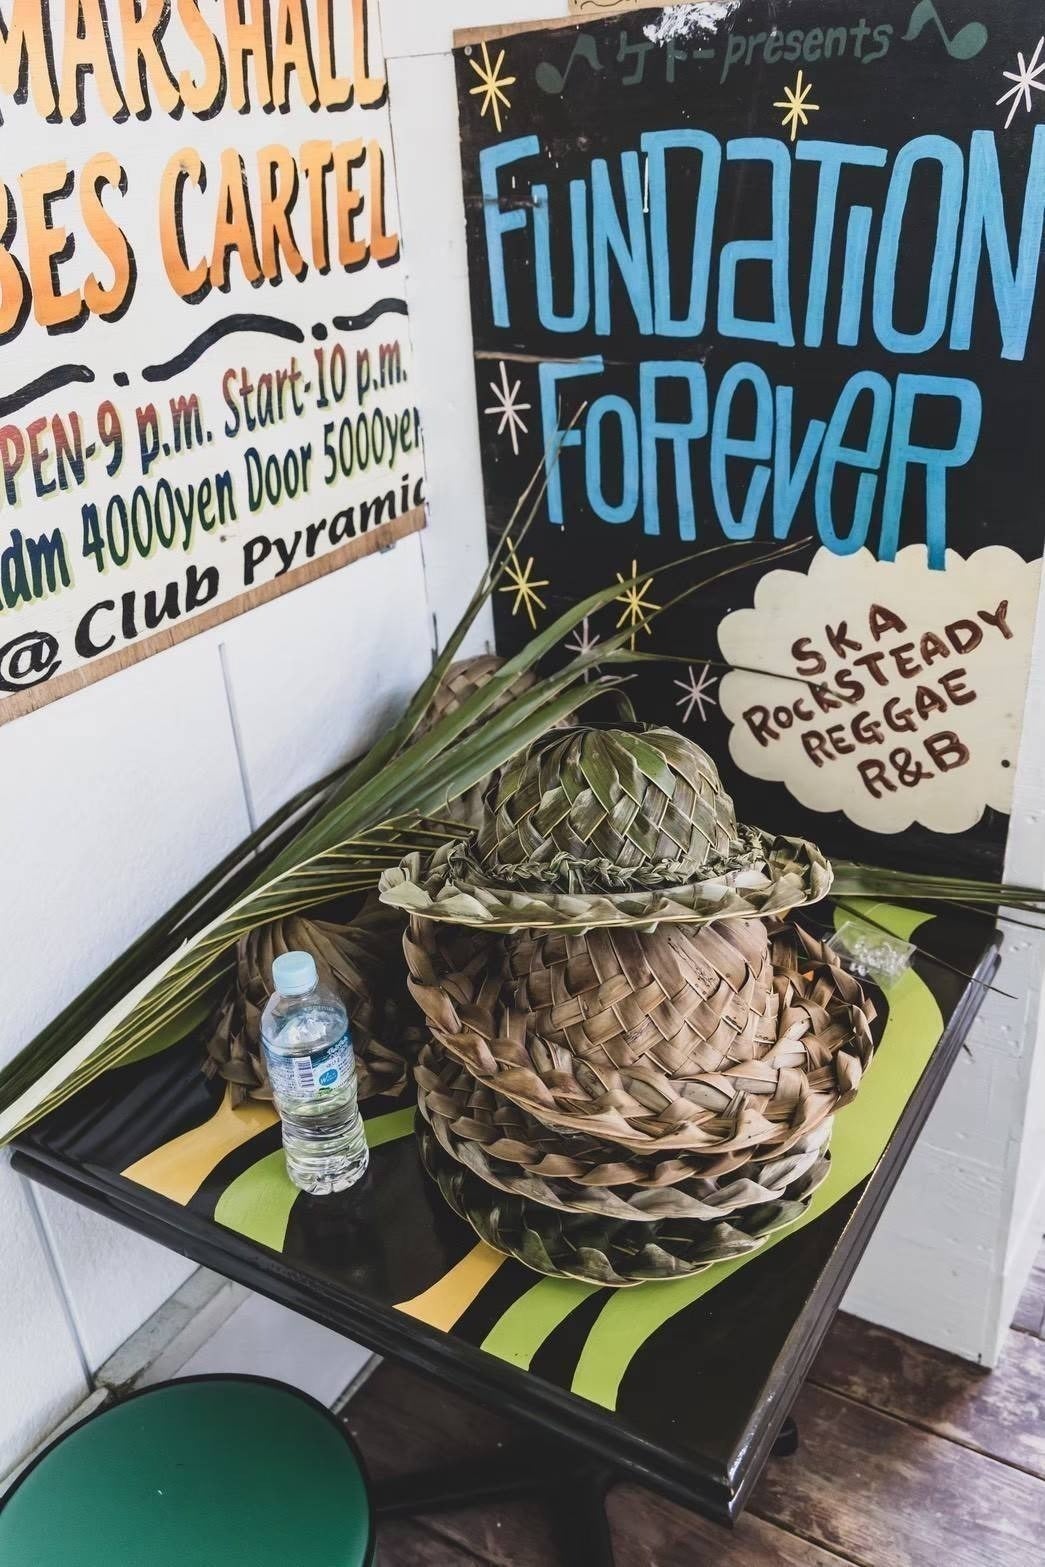 MARSHALL
BES CARTEL
PEN-9 p.m. Start-10 p.m.
dm 4000yen Door 5000yen
@ Club Pyramid
ケトー presents
FUNDATION
FOREVER
SKA
ROCKSTEADY
REGGAE
R&B